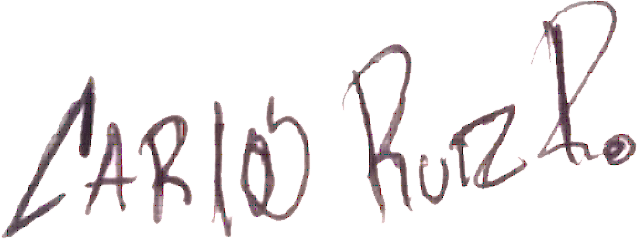 CARlOS RUIZ R.